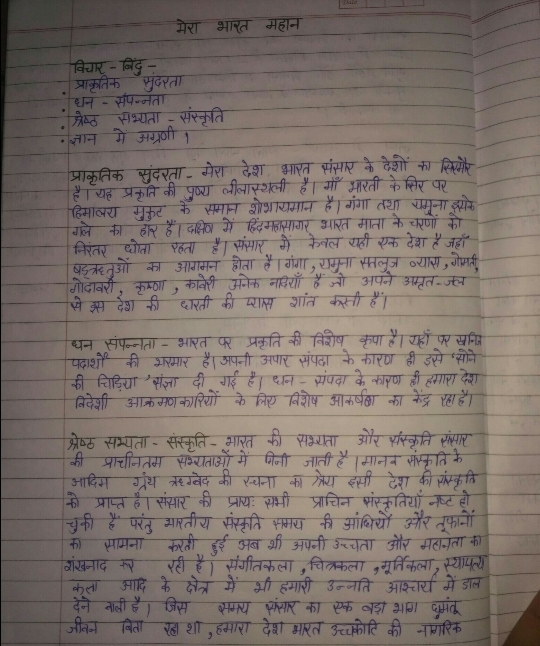 मेरा भारत महान
विचार - बिंदु -
• प्राकृतिक सुंदरता
• धन - संपन्नता
• श्रेष्ठ सभ्यता - संस्कृति
• ज्ञान में अग्रणी ।
प्राकृतिक सुंदरता - मेरा देश भारत संसार के देशों का सिरमौर
है। यह प्रकृति की पुण्य लीलास्थली है। माँ भारती के सिर पर
हिमालय मुकुट के समान शोभायमान है। गंगा तथा यमुना इसके
गले का हार हैं। दक्षिण में हिंदमहासागर भारत माता के चरणों को
निरंतर धोता रहता है। संसार में केवल यही एक देश है जहाँ
षड्ऋतुओं का आगमन होता है। गंगा, यमुना सतलुज व्यास, गोमती,
गोदावरी, कृष्णा, कावेरी अनेक नदियाँ हैं जो अपने अमृत-जल
से इस देश की धरती की प्यास शांत करती हैं।
धन संपन्नता - भारत पर प्रकृति की विशेष कृपा है। यहाँ पर खनिज
पदार्थों की भरमार है। अपनी अपार संपदा के कारण ही इसे 'सोने
की चिड़िया' संज्ञा दी गई है। धन - संपदा के कारण ही हमारा देश
विदेशी आक्रमणकारियों के लिए विशेष आकर्षण का केंद्र रहा है।
श्रेष्ठ सभ्यता - संस्कृति - भारत की सभ्यता और संस्कृति संसार
की प्राचीनतम सभ्यताओं में गिनी जाती है। मानव संस्कृति के
आदिम ग्रंथ ऋग्वेद की रचना का श्रेय इसी देश की संस्कृति
को प्राप्त है। संसार की प्रायः सभी प्राचिन संस्कृतियाँ नष्ट हो
चुकी है परंतु भारतीय संस्कृति समय की आंधियों और तूफानों
का सामना करती हुई अब भी अपनी उच्चता और महानता का
शंखनाद कर रही है। संगीतकला, चित्रकला, मूर्तिकला, स्थापत्य
कला आदि के क्षेत्र में भी हमारी उन्नति आश्चर्य में डाल
देने वाली है। जिस समय संसार का एक बड़ा भाग घुमंतू
जीवन बिता रहा था, हमारा देश भारत उच्चकोटि की नागरिक